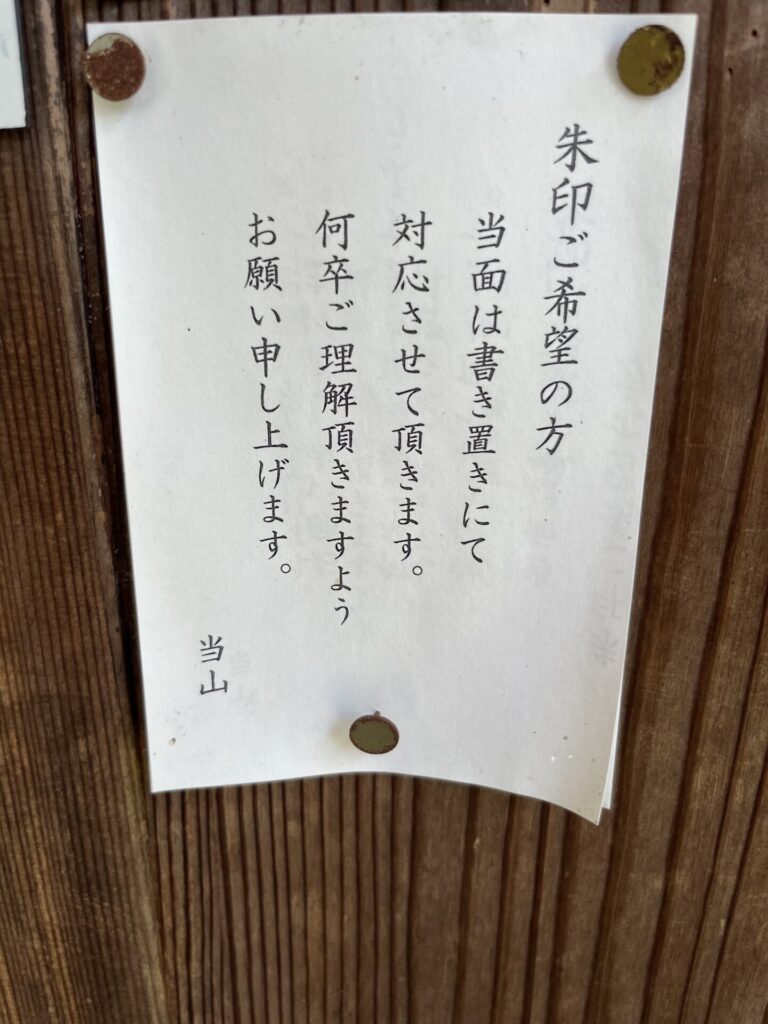 朱印ご希望の方
当面は書き置きにて
対応させて頂きます。
何卒ご理解頂きますよう
お願い申し上げます。
当山